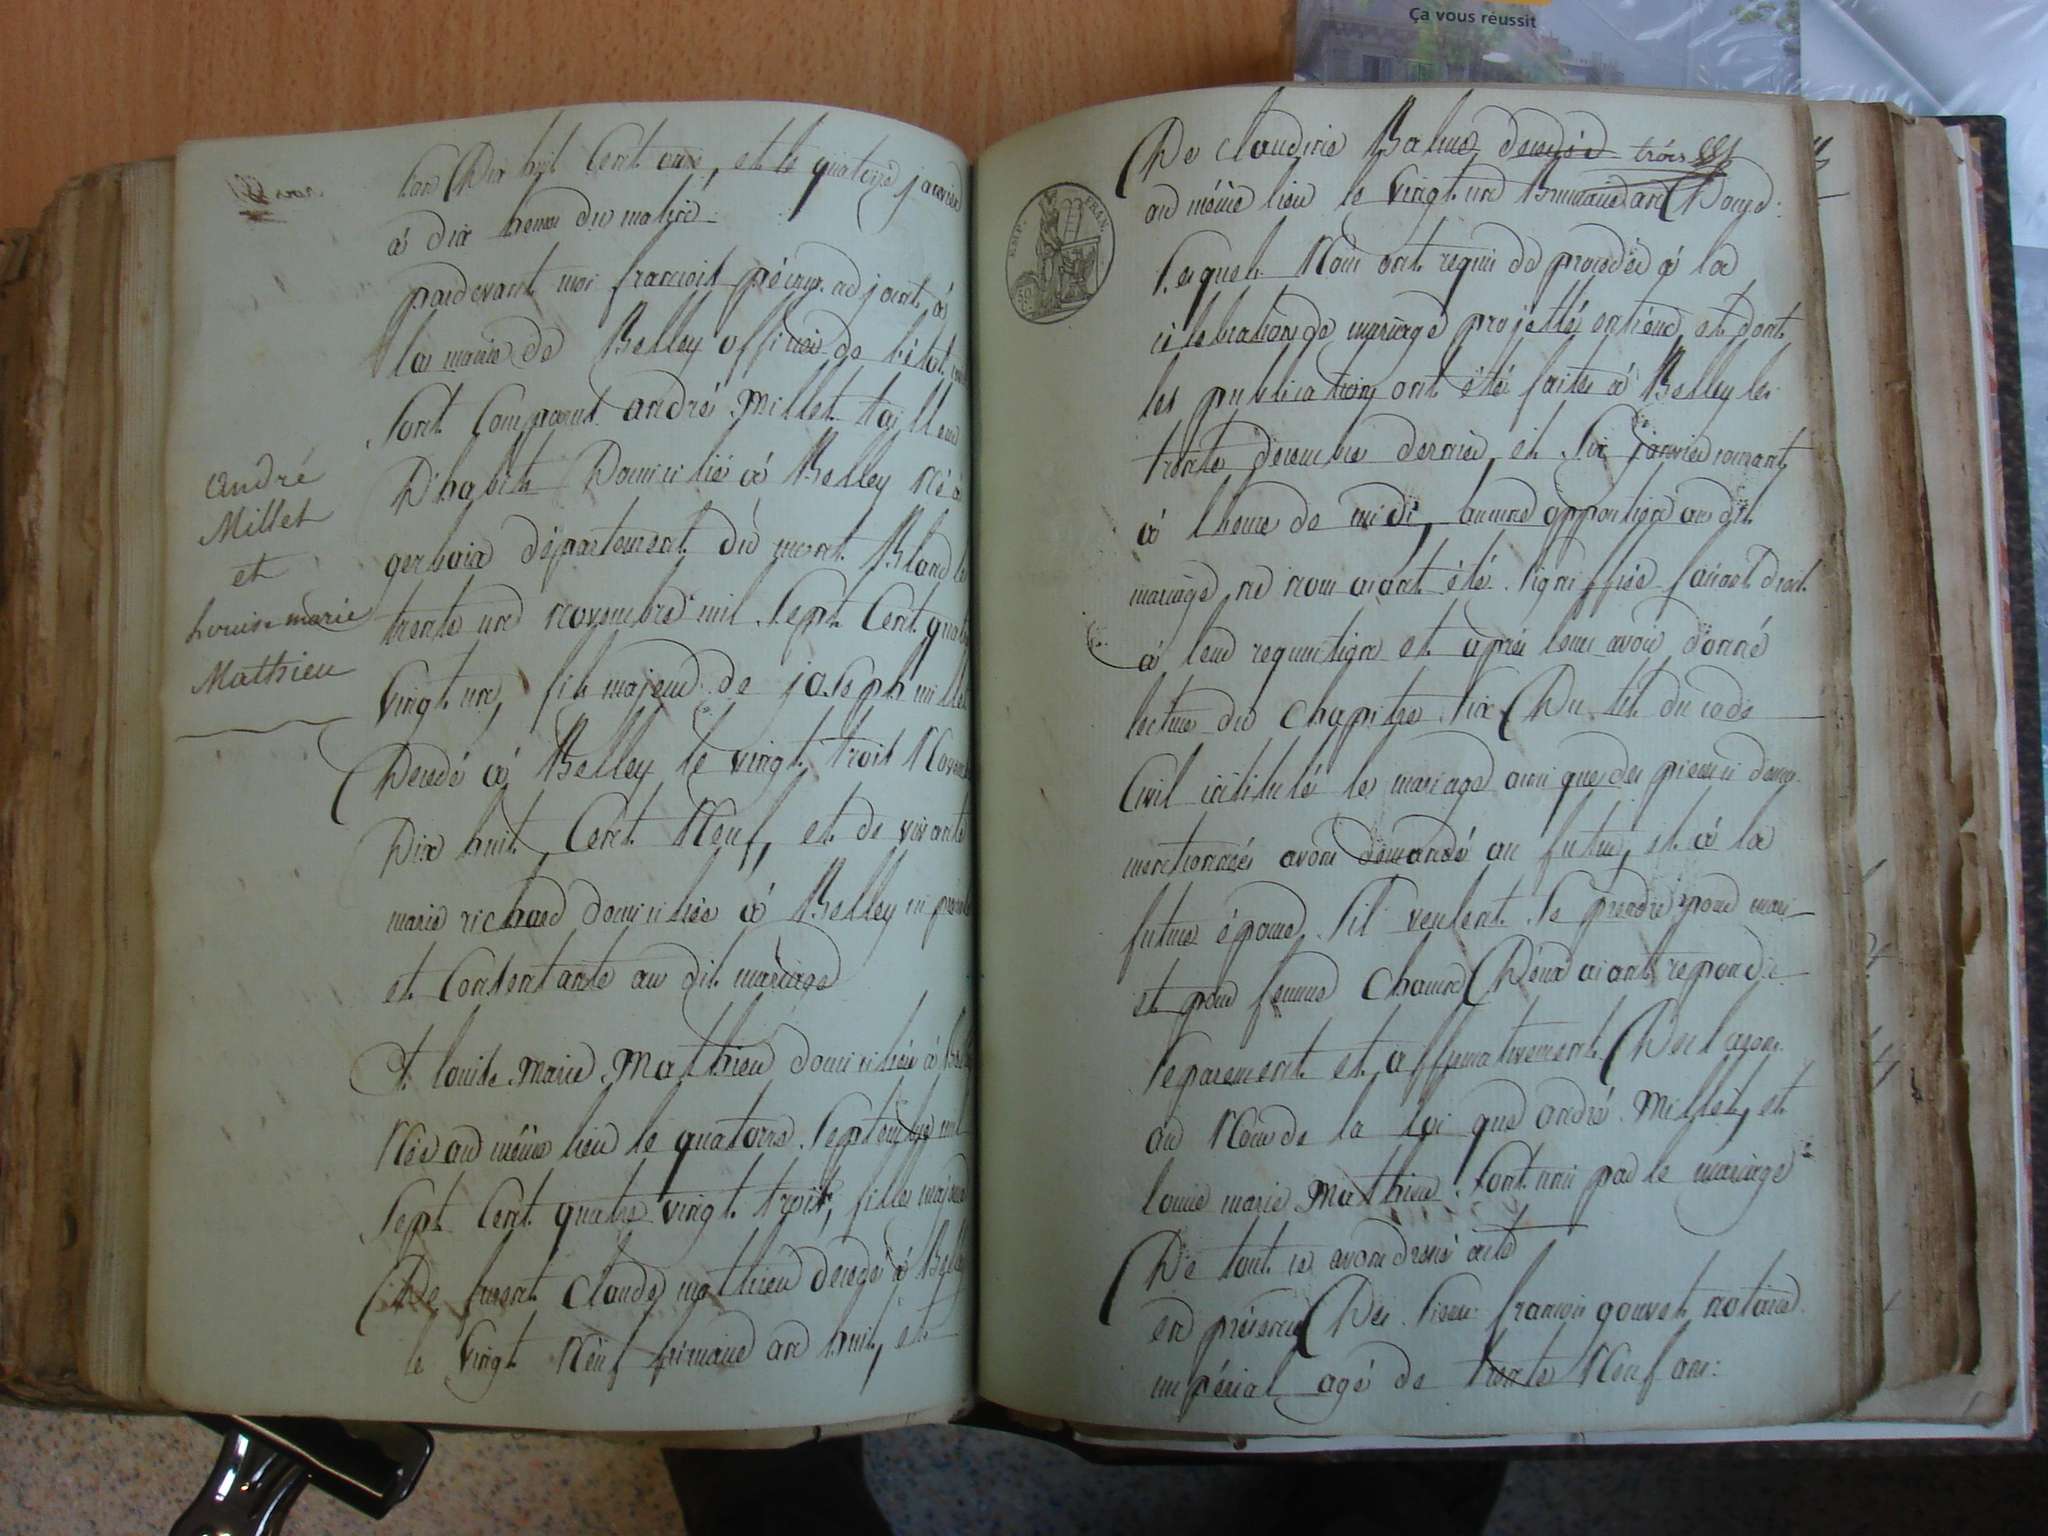 Ça vous réussit
lan Dix huit Cent onze, et le quatorze janvier
à dix heures du matin
pardevant moi françois adjoint à
la mairie de Belley officier de l'état
sont comparus andré Millet tailleur
D'habits Domicilié à Belley Né à
gerbaix département du mont Blanc le
trente un novembre mil sept Cent quatre
vingt un, fils majeur de joseph millet
Décédé à Belley le vingt trois Novem
Dix huit Cent Neuf, et de vivante
marie richard domiciliée à Belley ici
et Consentante au dit mariage
Et louise Marie Mathieu domiciliée à
Née au même lieu le quatorze Septembre mil
Sept Cent quatre vingt trois, fille majeure
De Claude mathieu décédé à Belley
le vingt Neuf frimaire an huit, et
andré
Millet
et
Louise marie
Mathieu
De claudine Balme décédée trois
au même lieu le vingt un Brumaire an Douze
EMP. FRAN.
50
Lesquels Nous ont requis de procéder à la
célébration de mariage projetté entreux, et dont
les publications ont été faites à Belley les
trente décembre dernier, et six janvier courant
à l'heure de midi, aucune opposition au dit
mariage ne nous aiant été signiffiée faisant droit
à leur requisition et après leur avoir donné
lecture du chapitre six Du tit. du code
Civil intitulé le mariage ainsi que des pièces ci dessus
mentionnées avons demandé au futur, et à la
future épouse s'il veulent se prendre pour mari
et pour femme chacun D'eux aiant repondu
séparement et affirmativement Declarons
au Nom de la loi que andré Millet, et
louise marie Mathieu sont unis par le mariage
De tout ce avons dressé acte
en présence Des sieurs françois gouvet notaire
impérial agé de trente Neuf ans